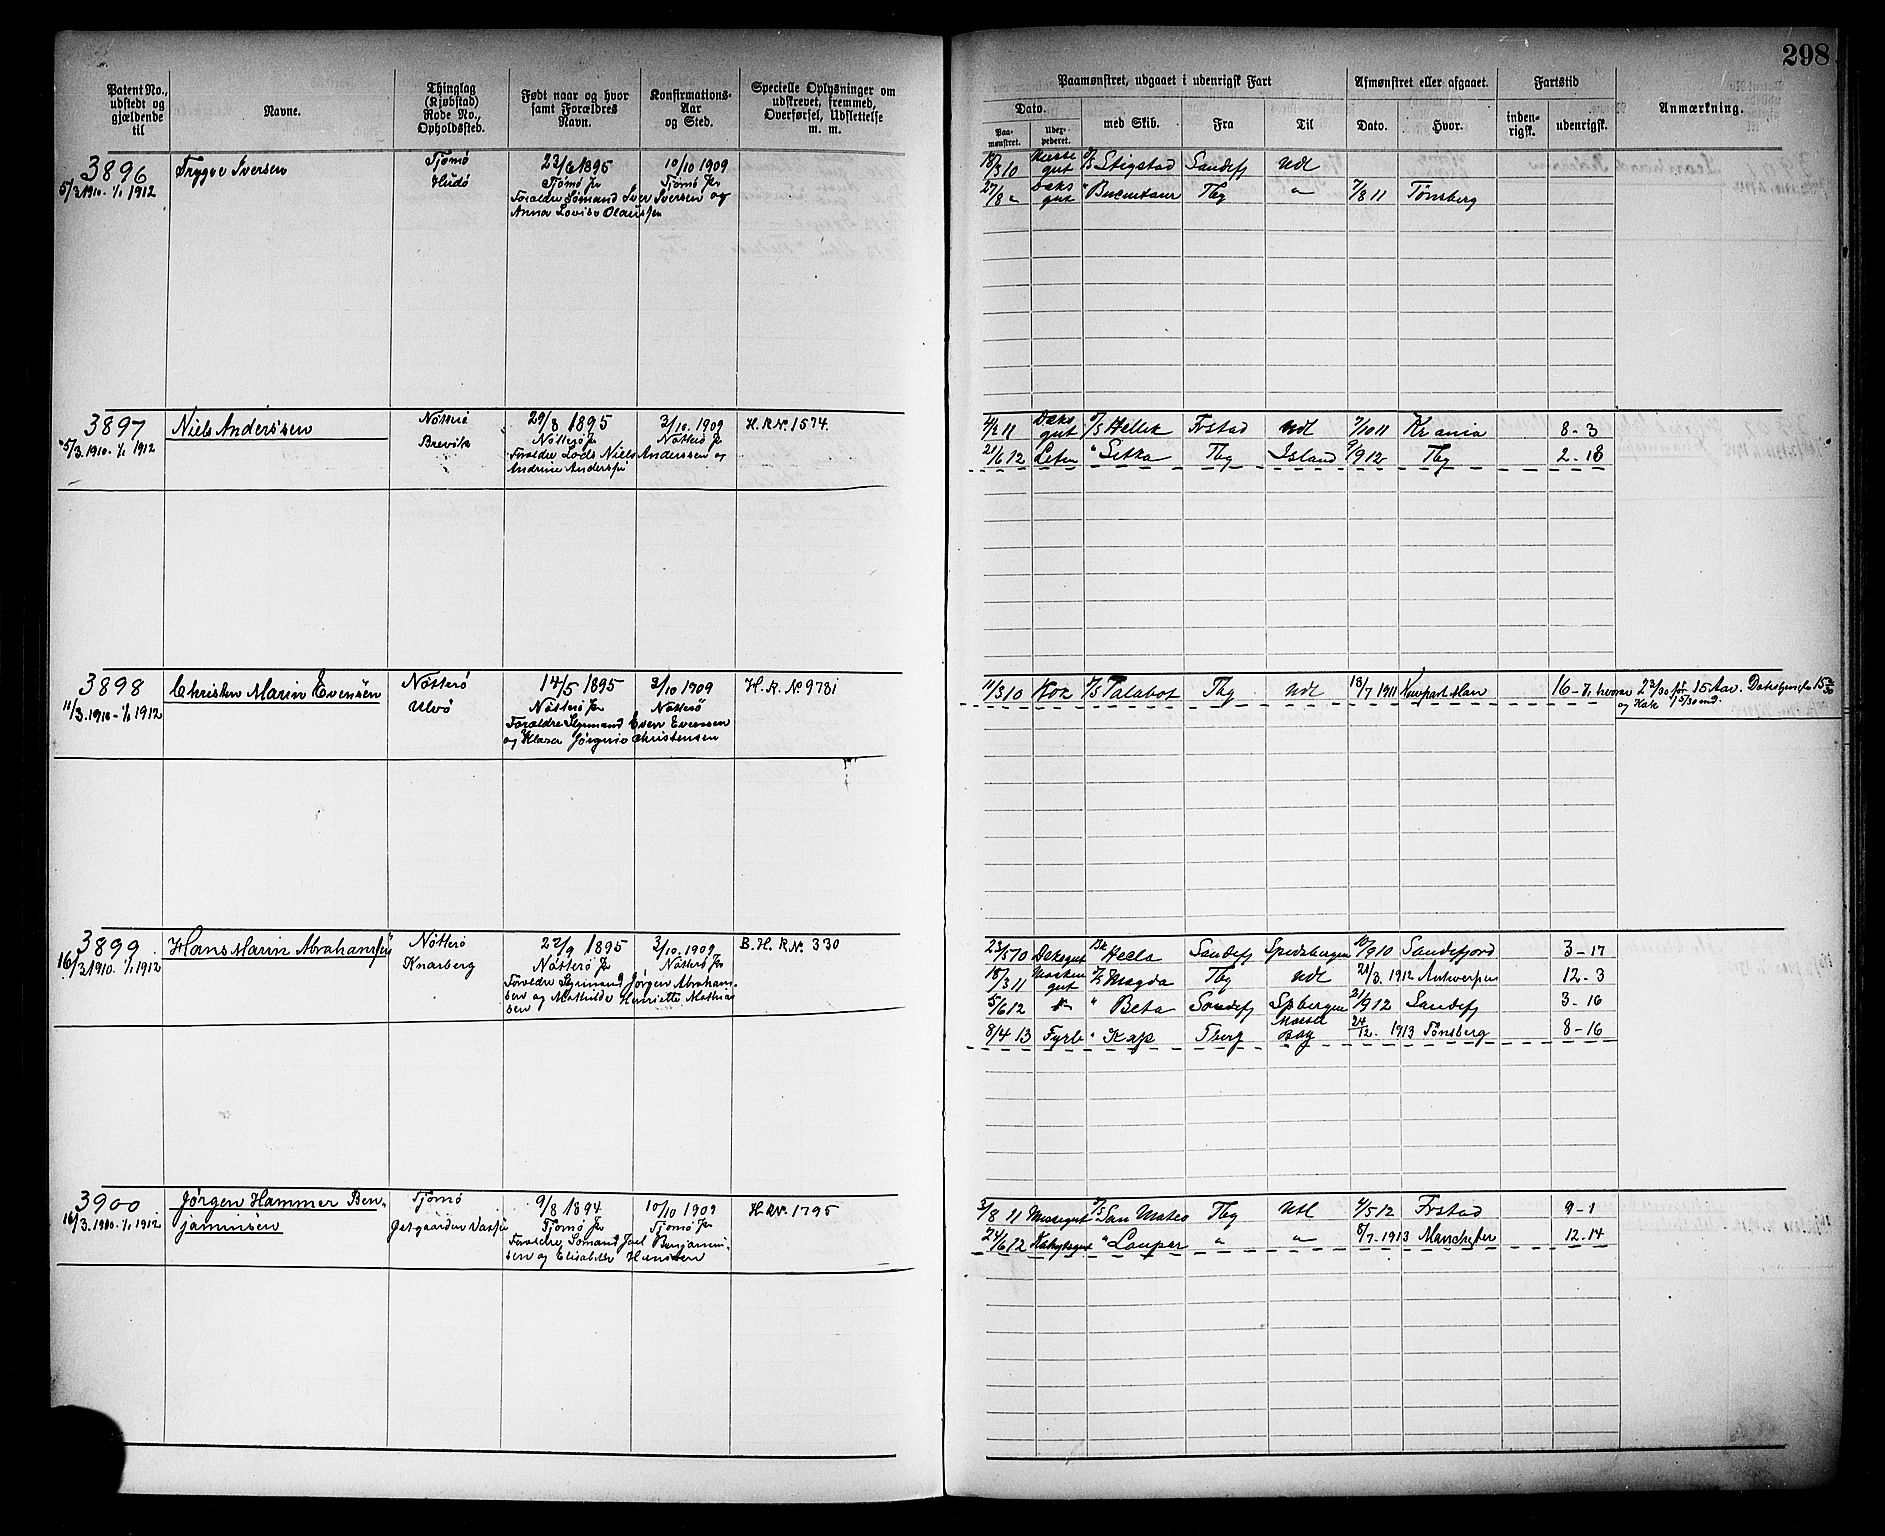 298
Patent No., udstedt og gjældende til
Navne.
Thinglag (Kjøbstad) Rode No., Opholdssted.
Født naar og hvor samt Forældres Navn.
Konfirmations- Aar og Sted.
Specielle Oplysninger om udskrevet, fremmed, Overførsel, Udslettelse m. m.
Paamønstret, udgaaet i udenrigsk Fart
Afmønstret eller afgaaet.
Fartstid
Anmærkning.
Dato.
Paa- mønstret.
med Skib.
Fra
Til
Dato.
Hvor.
inden- rigsk.
udenrigsk.
3896
5/3 1910 - 1/1 1912
Trygve Iversen
Tjømø
Hudø
23/6 1895
Tjømø Pr
Forældre Sømand Iver Iversen og
Anna Lovise Olaussen
10/10 1909
Tjømø Pr
18/3 10 Messegut D/S Stigstad Sandefj Udl
27/8 " Dæksgut " Bucentaur Tbg " 7/8 11 Tønsberg
3897
5/3 1910 - 1/1 1912
Niels Anderssen
Nøtterø
Brevik
29/8 1895
Nøtterø Pr
Forældre Lods Niels Anderssen og
Andrine Anderssen
3/10 1909
Nøtterø Pr
H. R. No 1574.
4/2 11 Dæksgut D/S Hellek Frstad Udl 7/10 11 Kr ania 8 - 3
21/6 12 Letm " Sitka Tbg Island 9/9 12 Tbg 2 - 18
3898
11/3 1910 - 1/1 1912
Christen Marin Evensen
Nøtterø
Ulvø
14/5 1895
Nøtterø Pr
Forældre Styrmand Even Evensen
og Klara Jørgine Christensen
3/10 1909
Nøtterø
H. R. No 9731
11/3 10 Kok D/S Talabot Tbg Udl 18/7 1911 Newport Mon 16 - 7/ hvorav 22/30 før 15 Aar. Dæksgut
og Kok
3899
16/3 1910 - 1/1 1912
Hans Marin Abrahamsen
Nøtterø
Knarberg
22/9 1895
Nøtterø Pr
Forældre Styrmand Jørgen Abraham-
sen og Mathilde Henriette Mathias
sen
3/10 1909
Nøtterø Pr
B. H. R No. 330
23/5 10 Dæksgut Hecla Sandefj Spedsbergen 10/9 10 Sandefjord 3 - 17
18/3 11 Maskengut D/S Magda Tbg Udl 21/3. 1912 Antwerpen 12 - 3
5/6 12 " Beta Sandefj Spbergen 21/9 12 Sandefj 3 - 16
8/4 13 Fyrb " Kap Tberg Mossel Bay 24/12. 1913 Tønsberg 8 - 16
3900
16/3 1910 - 1/1 1912
Jørgen Hammer Ben-
jaminsen
Tjømø
9/8 1894
Tjømø Pr
Forældre Sømand Joel Benjamin-
sen og Elisabeth Hansen
10/10 1909
Tjømø Pr
H. R No. 1795
3/8 11 Messegut D/S San Mateo Tbg Udl 4/5 12 Frstad 9 - 1
24/6 12 Kahytsgut " " " 8/7. 1913 Manchester 12 - 14